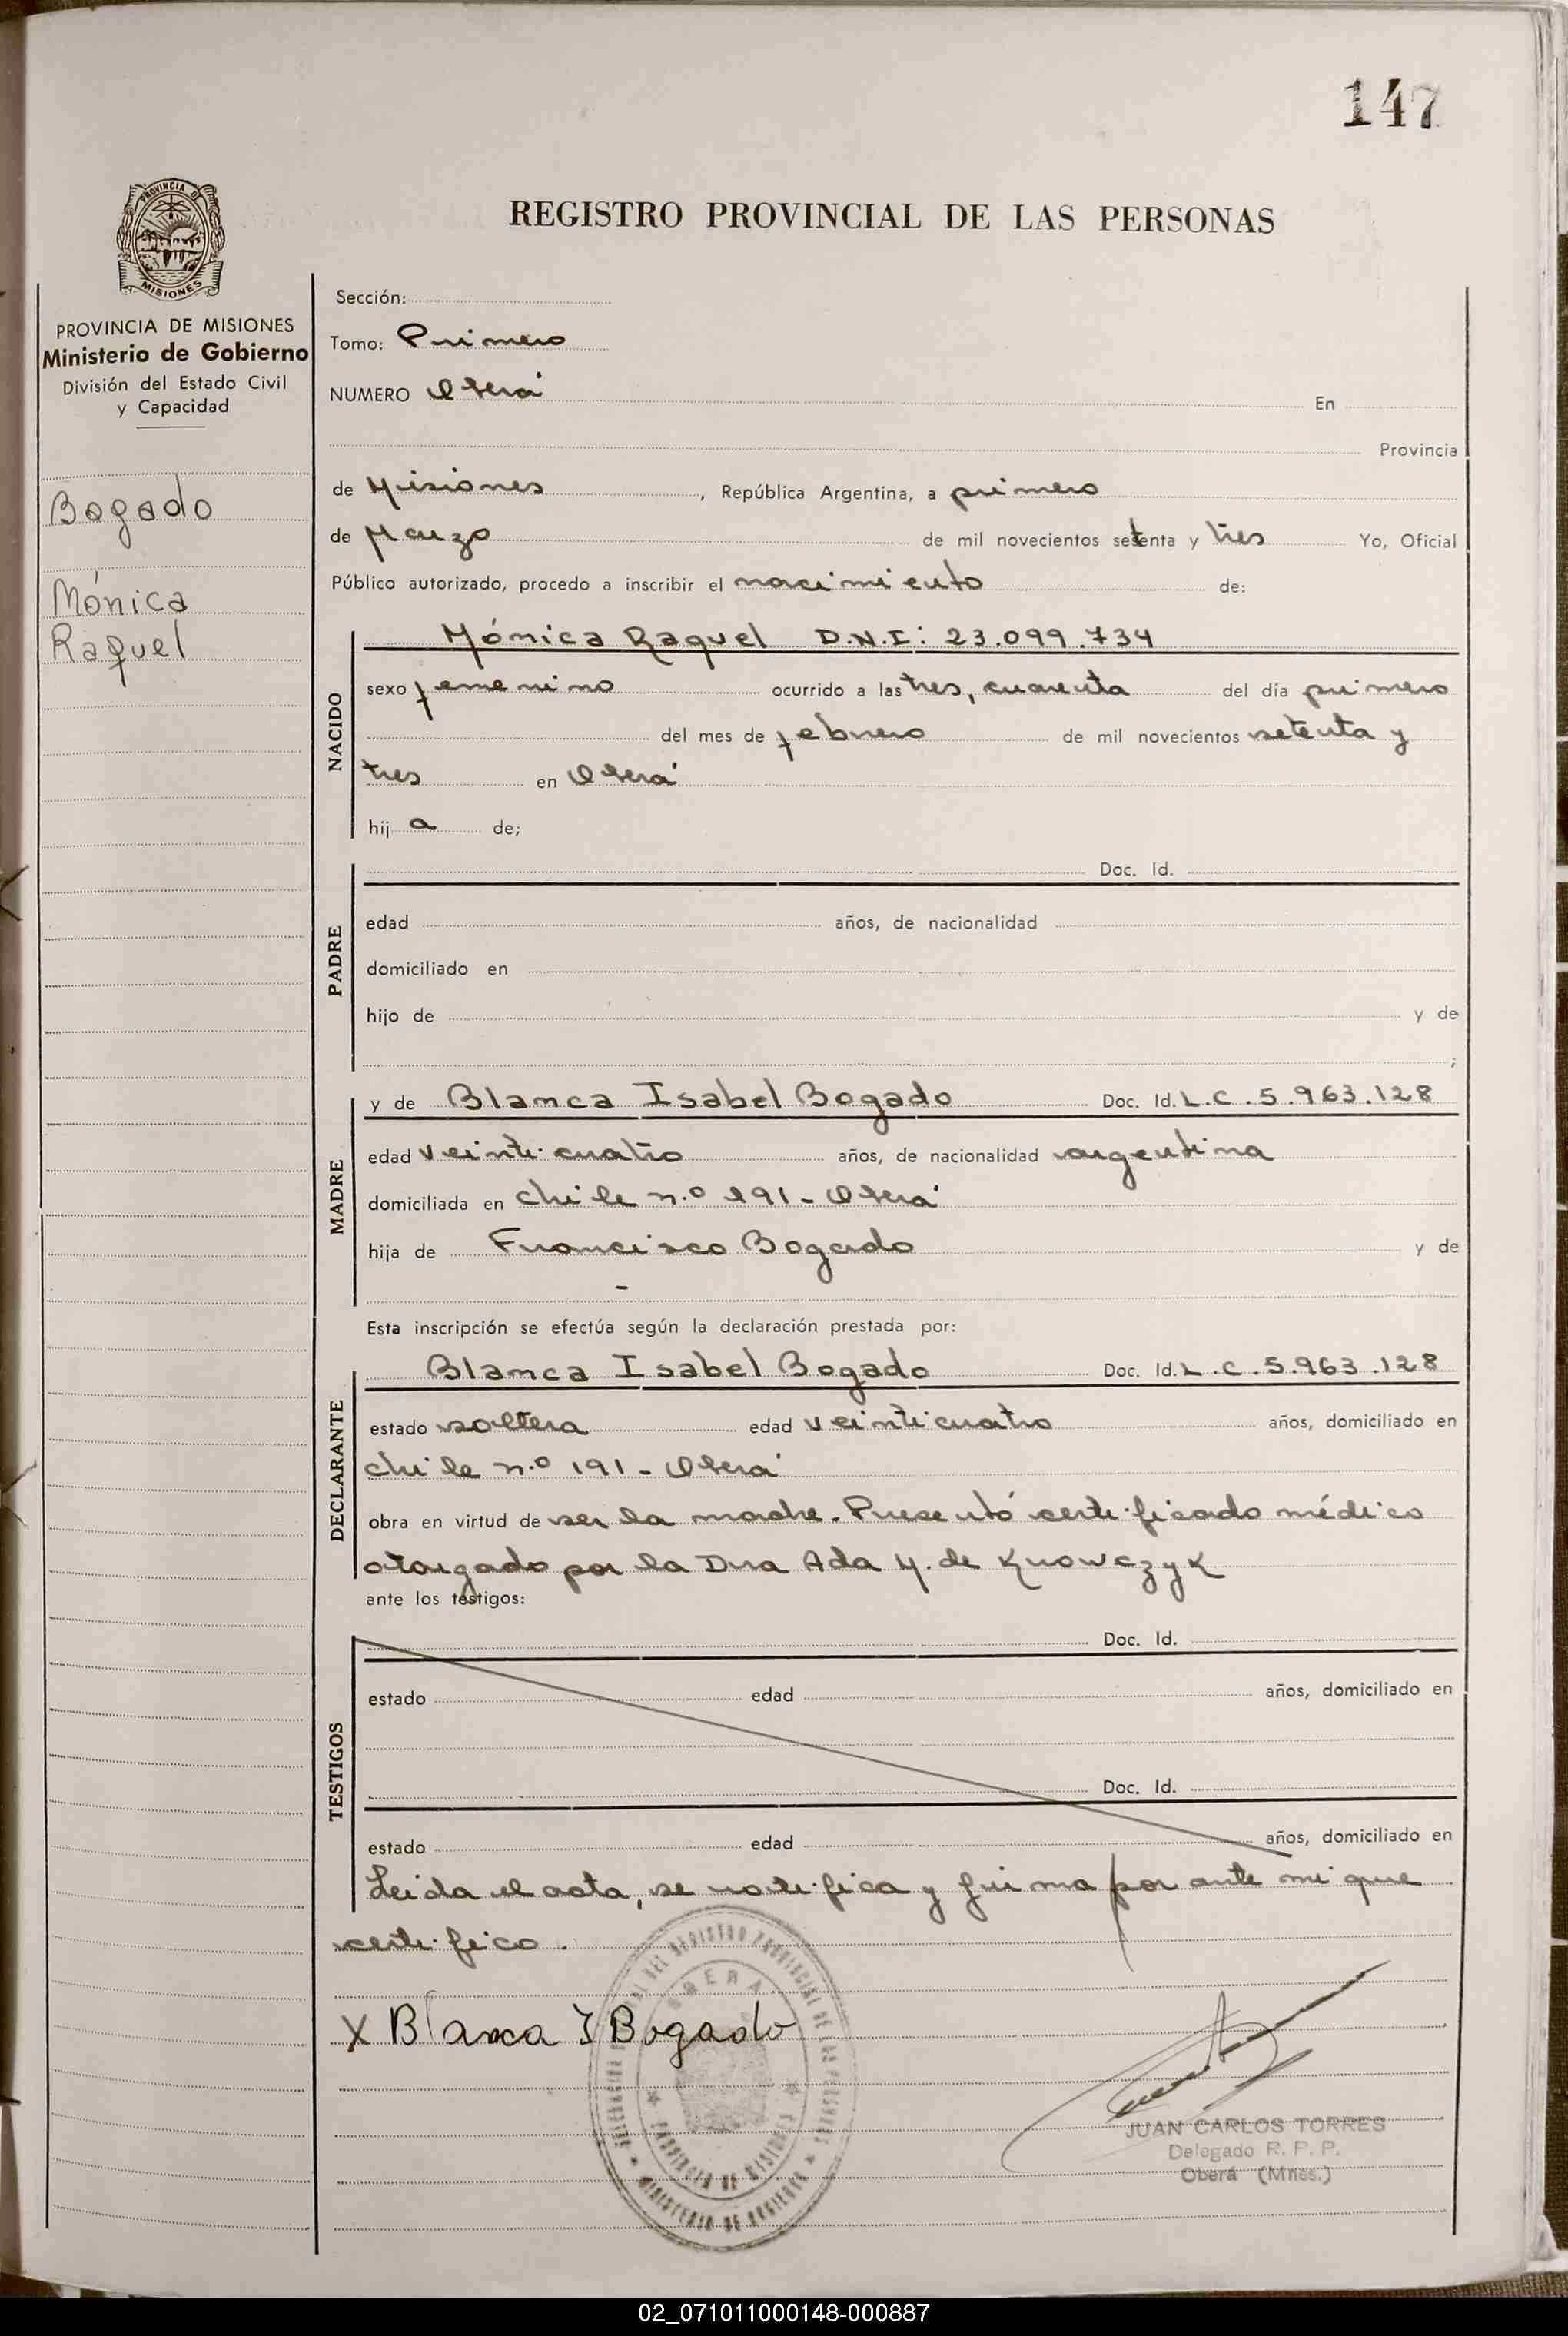 147
PROVINCIA DE
MISIONES
PROVINCIA DE MISIONES
Ministerio de Gobierno
División del Estado Civil
y Capacidad
Bogado
Mónica
Raquel
REGISTRO PROVINCIAL DE LAS PERSONAS
Sección:
Tomo: Primero
NUMERO Oberá En
Provincia
de Misiones , República Argentina, a primero
de Marzo de mil novecientos setenta y tres Yo, Oficial
Público autorizado, procedo a inscribir el nacimiento de:
NACIDO
Mónica Raquel D.N.I: 23.099.734
sexo femenino ocurrido a las tres, cuarenta del día primero
del mes de febrero de mil novecientos setenta y
tres en Oberá
hij a de;
PADRE
Doc. Id.
edad años, de nacionalidad
domiciliado en
hijo de y de
;
MADRE
y de Blanca Isabel Bogado Doc. Id. L.C. 5.963.128
edad veinticuatro años, de nacionalidad argentina
domiciliada en Chile n.º 191 - Oberá
hija de Francisco Bogado y de
-
Esta inscripción se efectúa según la declaración prestada por:
DECLARANTE
Blanca Isabel Bogado Doc. Id. L.C. 5.963.128
estado soltera edad veinticuatro años, domiciliado en
Chile n.º 191 - Oberá
obra en virtud de ser la madre. Presentó certificado médico
otorgado por la Dra Ada M. de Krowczyk
ante los testigos:
TESTIGOS
Doc. Id.
estado edad años, domiciliado en
Doc. Id.
estado edad años, domiciliado en
Leida el acta, se notifica y firma por ante mi que
certifico.
X Blanca I Bogado
DEL REGISTRO PROVINCIAL DE LAS PERSONAS
OBERA
PROVINCIA DE MISIONES
MINISTERIO DE GOBIERNO
JUAN CARLOS TORRES
Delegado R. P. P.
Oberá (Mnes.)
02_071011000148-000887